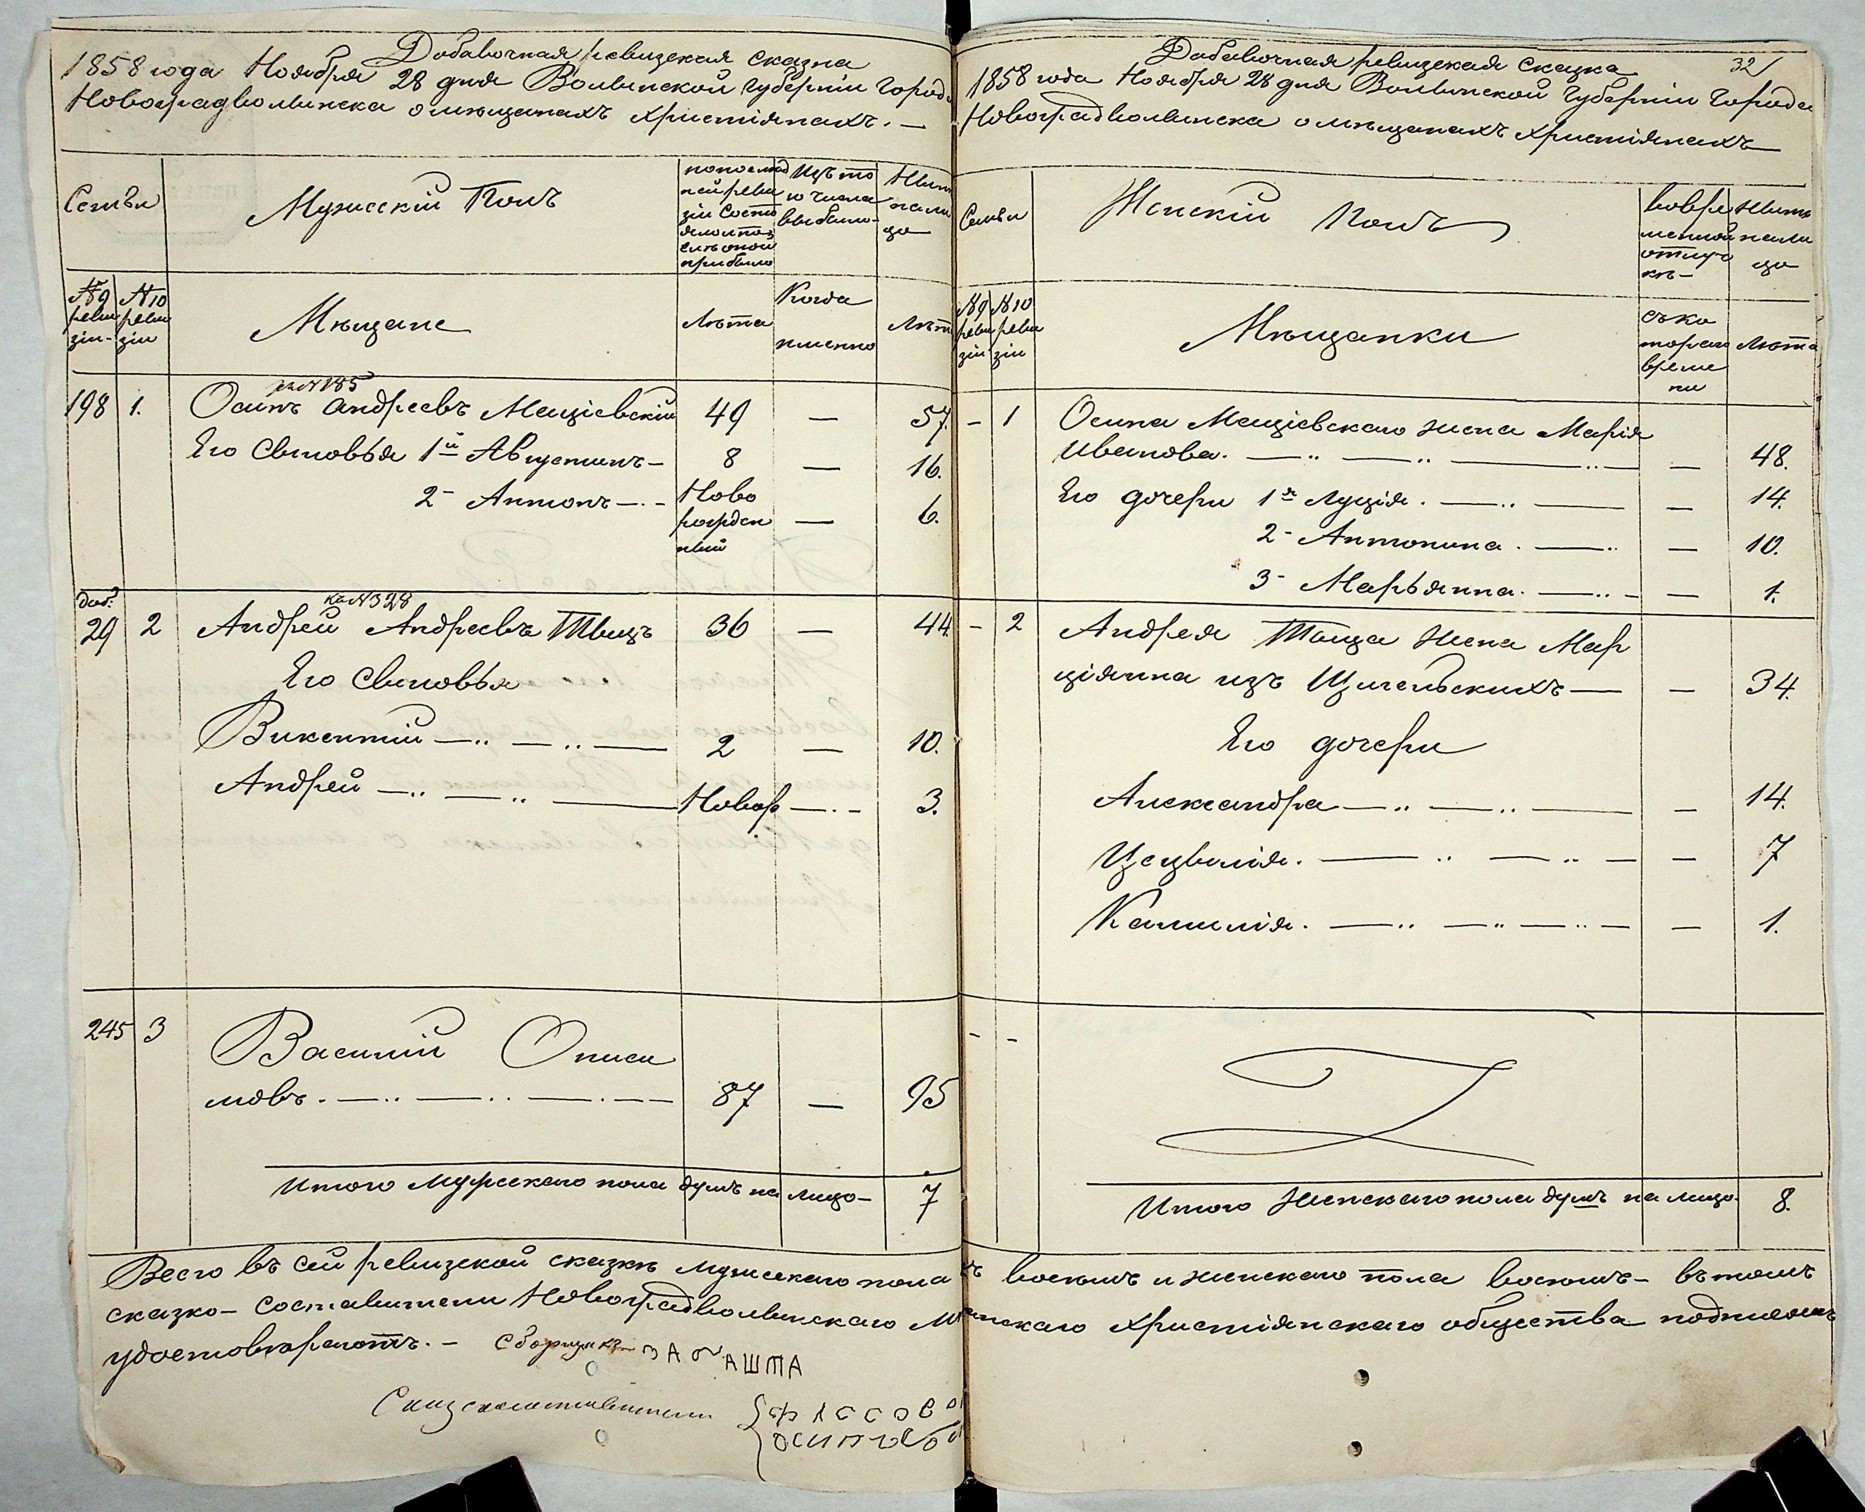 Добавочная ревизская сказка
1858 года Ноября 28 дня Волынской Губерніи Города
Новоградволынска о мѣщанахъ христіянахъ. —
Семьи
Мужескій Полъ
по послѣд
ней реви
зіи состо
яло и по
слѣ оной
прибыло
Изъ то
го числа
выбыло
Нынѣ
на ли
цо
№ 9 реви зіи
№ 10 реви зіи
Мѣщане
Лѣта
Когда
именно
Лѣта
на № 185
198 1. Осипъ Андреевъ Мацѣевскій 49 — 57.
Его Сыновья 1й Августинъ — 8 — 16.
2 - Антонъ — Ново
рожден
ный — 6.
доб.
на № 328
29 2 Андрей Андреевъ Швецъ 36 — 44
Его Сыновья
Викентій — 2 — 10.
Андрей — Новор — 3.
245 3 Василій
мовъ. — 87 — 95
Итого мужескаго пола душъ на лицо — 7
Добавочная ревизская сказка 32
1858 года Ноября 28 дня Волынской Губерніи Города
Новоградволынска о мѣщанахъ христіянахъ
Семьи
Женскій Полъ
Во вре
менной
отлуч
кѣ —
Нынѣ
на ли
цо
№ 9 реви зіи
№ 10 реви зіи
Мѣщанки
съ ко
тораго
време
ни
Лѣта
- 1 Осипа Мацѣевскаго жена Марія
Иванова. — — 48.
Его дочери 1я Луція. — — 14.
2 - Антонина. — — 10.
3 - Марьянна. — — 1.
- 2 Андрея Швеца жена Мар
ціянна изъ — — 34.
Его дочери
Александра — — 14.
Цецылія. — — 7
Камилія. — — 1.
- -
Итого женскаго пола душъ на лицо 8.
Всего въ сей ревизской сказкѣ мужескаго пола восемъ и женскаго пола восемь — въ томъ
сказко-составители Новоградволынскаго Мѣщанскаго христіянскаго общества подписомъ
удостовѣряютъ. — Сборщикъ
Сказкосоставители